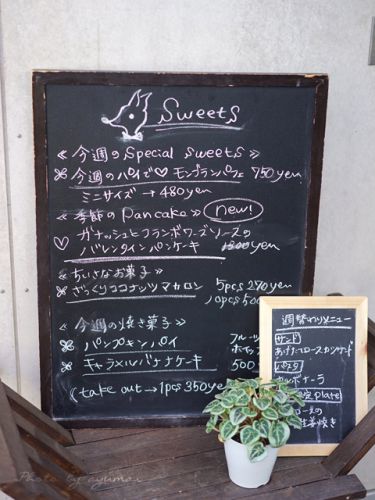 Sweets
≪今週のSpecial Sweets≫
今週のパイ♡モンブランパイ 750yen
ミニサイズ → 480yen
≪季節のPancake≫ new!
ガナッシュとフランボワーズソースの
バレンタインパンケーキ 1300yen
≪ちいさなお菓子≫
ざっくりココナッツマカロン 5pcs 290yen
10pcs 500
≪今週の焼き菓子≫
パンプキンパイ フルーツ
ホイップ
キャラメルバナナケーキ 500
(take out → 1pcs 350ye
週替わりメニュー
サンド
あげたロースカツサンド
パスタ
カルボナーラ
plate
生姜焼き
Photo by ayumai